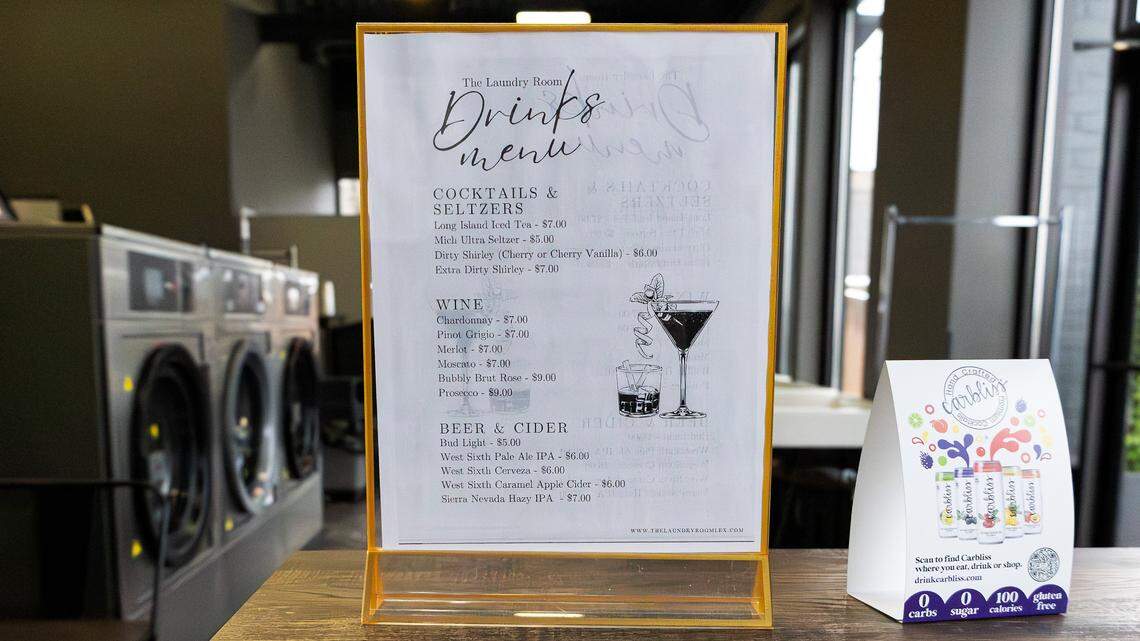 The Laundry Room
Drinks
menu
COCKTAILS &
SELTZERS
Long Island Iced Tea - $7.00
Mich Ultra Seltzer - $5.00
Dirty Shirley (Cherry or Cherry Vanilla) - $6.00
Extra Dirty Shirley - $7.00
WINE
Chardonnay - $7.00
Pinot Grigio - $7.00
Merlot - $7.00
Moscato - $7.00
Bubbly Brut Rose - $9.00
Prosecco - $9.00
BEER & CIDER
Bud Light - $5.00
West Sixth Pale Ale IPA - $6.00
West Sixth Cerveza - $6.00
West Sixth Caramel Apple Cider - $6.00
Sierra Nevada Hazy IPA - $7.00
WWW.THELAUNDRYROOMLEX.COM
Hand Crafted
carbliss
Premium Cocktails
carbliss
carbliss
carbliss
carbliss
carbliss
Scan to find Carbliss
where you eat, drink or shop.
drinkcarbliss.com
0 carbs
0 sugar
100 calories
gluten free